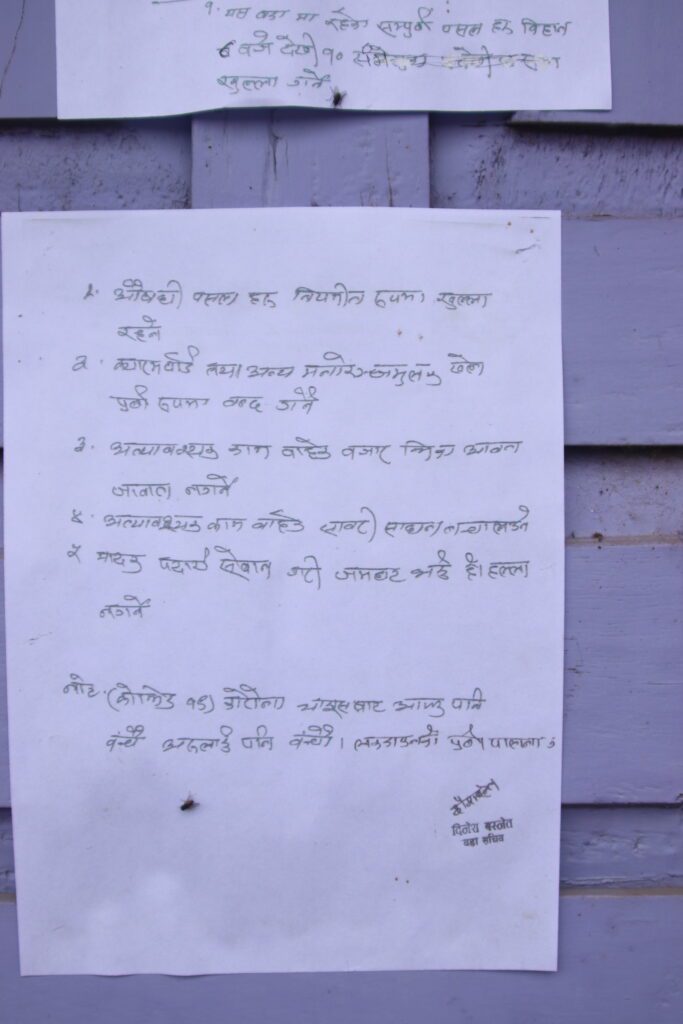 १. यस वडा मा रहेका सम्पुर्ण पसल हरु विहान
६ बजे देखी १०
खुल्ला गर्ने
१. औषधी पसल हरु नियमीत रुपमा खुल्ला
रहने
२. क्यारमबोर्ड तथा अन्य मनोरञ्जमुलक खेल
पुर्ण रुपमा बन्द गर्ने
३. अत्यावश्यक काम बाहेक बजार आवत
जावत नगर्ने
४. अत्यावश्यक काम बाहेक सवारी साधन नचलाउने
५ मादक पदार्थ सेवन गरी जमघट भई हो हल्ला
नगर्ने
नोट. (कोभिड १९) कोरोना भाइरसबाट आफु पनि
बचौं अरुलाई पनि बचाऔं । लकडाउनको पुर्ण पालना
दिनेश बस्नेत
वडा सचिव